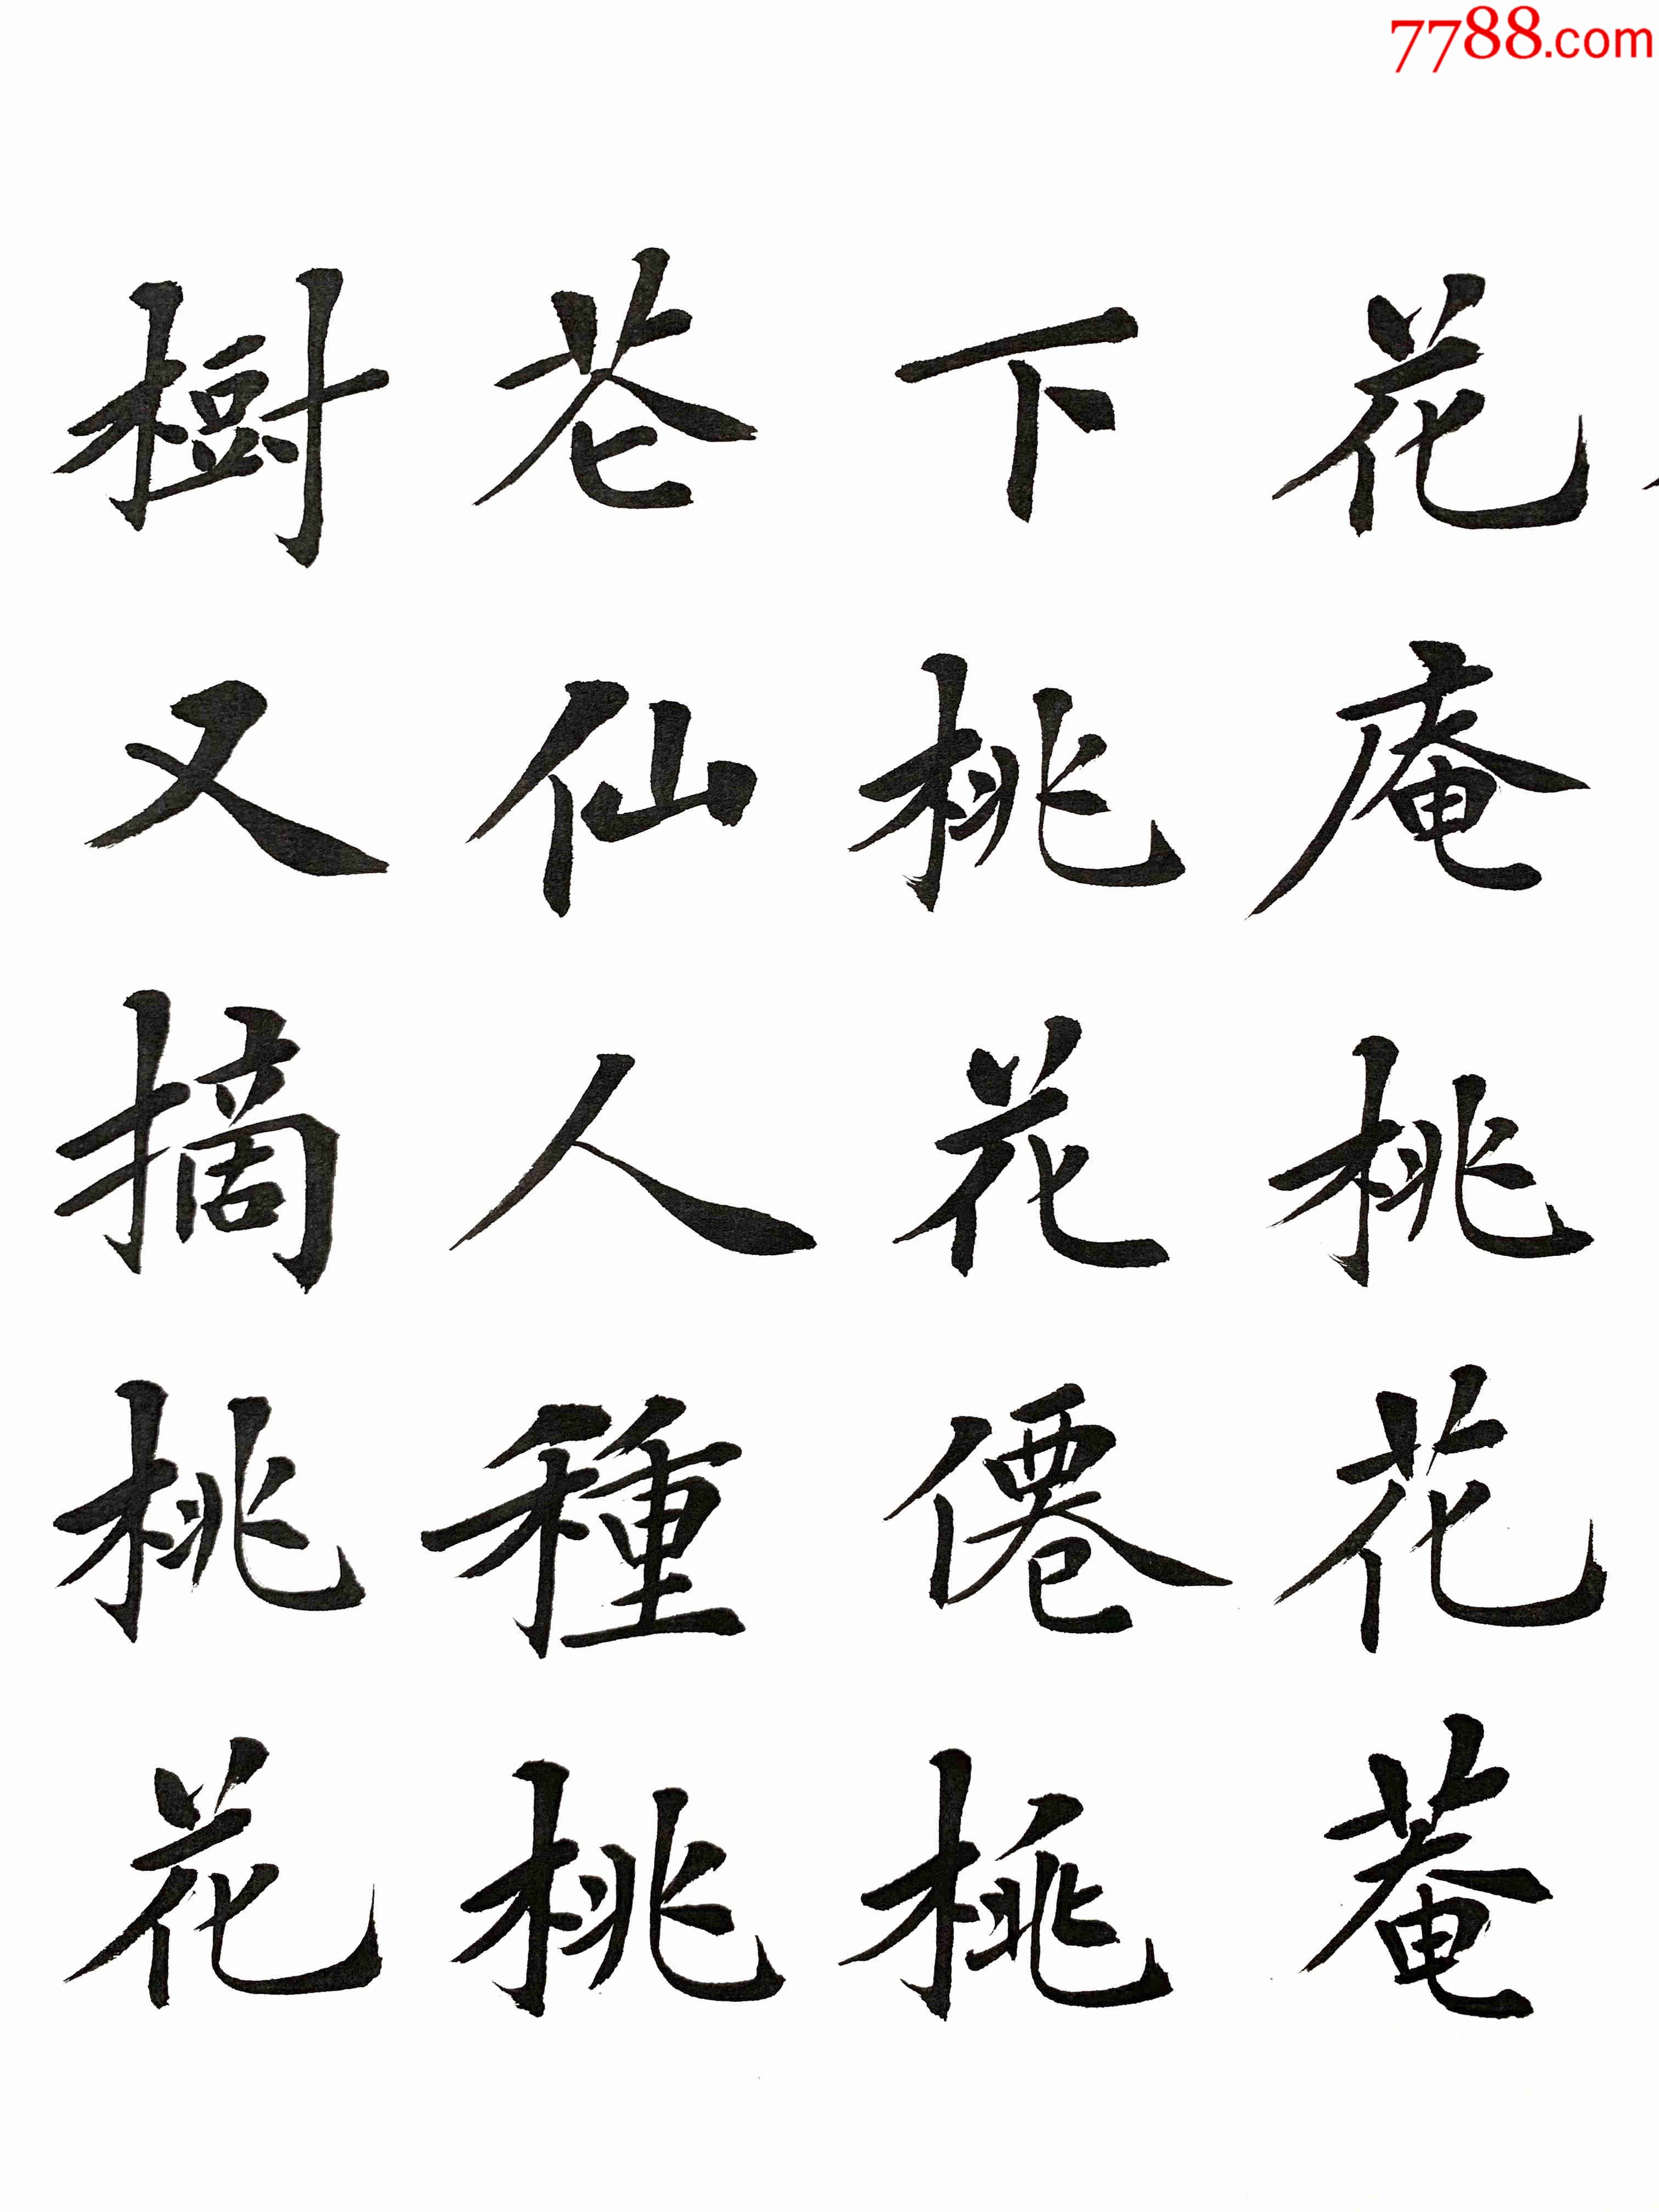 7788.com
花庵桃花菴
下桃花僊桃
花仙人種桃
樹又摘桃花